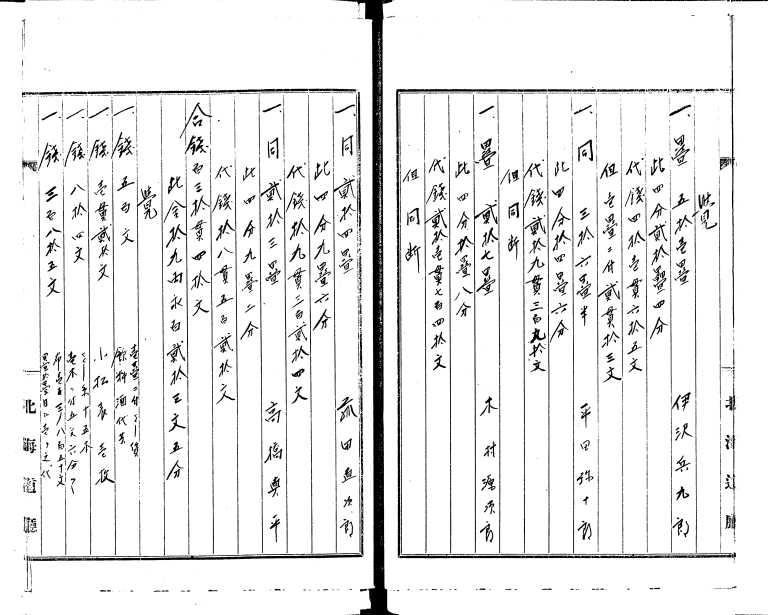 覚
一、畳 五拾壱畳 伊沢兵九郎
此四分弐拾畳四分
代銭四拾壱貫六拾五文
但壱畳ニ付弐貫拾三文
一、同 三拾六畳半 平田弥十郎
此四分拾四畳六分
代銭弐拾九貫三百九拾文
但同断
一、畳 弐拾七畳 木村源次郎
此四分拾畳八分
代銭弐拾壱貫七百四拾文
但同断
一、同 弐拾四畳 田直次郎
此四分九畳六分
代銭拾九貫三百弐拾四文
一、同 弐拾三畳 高橋奥平
此四分九畳二分
代銭拾八貫五百弐拾文
合銭百三拾貫四拾文
此金拾九両永百弐拾三文五分
覚
一、銭 五百文
壱畳ニ付
飯料酒代共
一、銭 壱貫弐拾文 小拓表壱枚
一、銭 八拾四文
十五本
壱本ニ付五文六分
一、銭 三百八拾五文
北海道庁
北海道庁